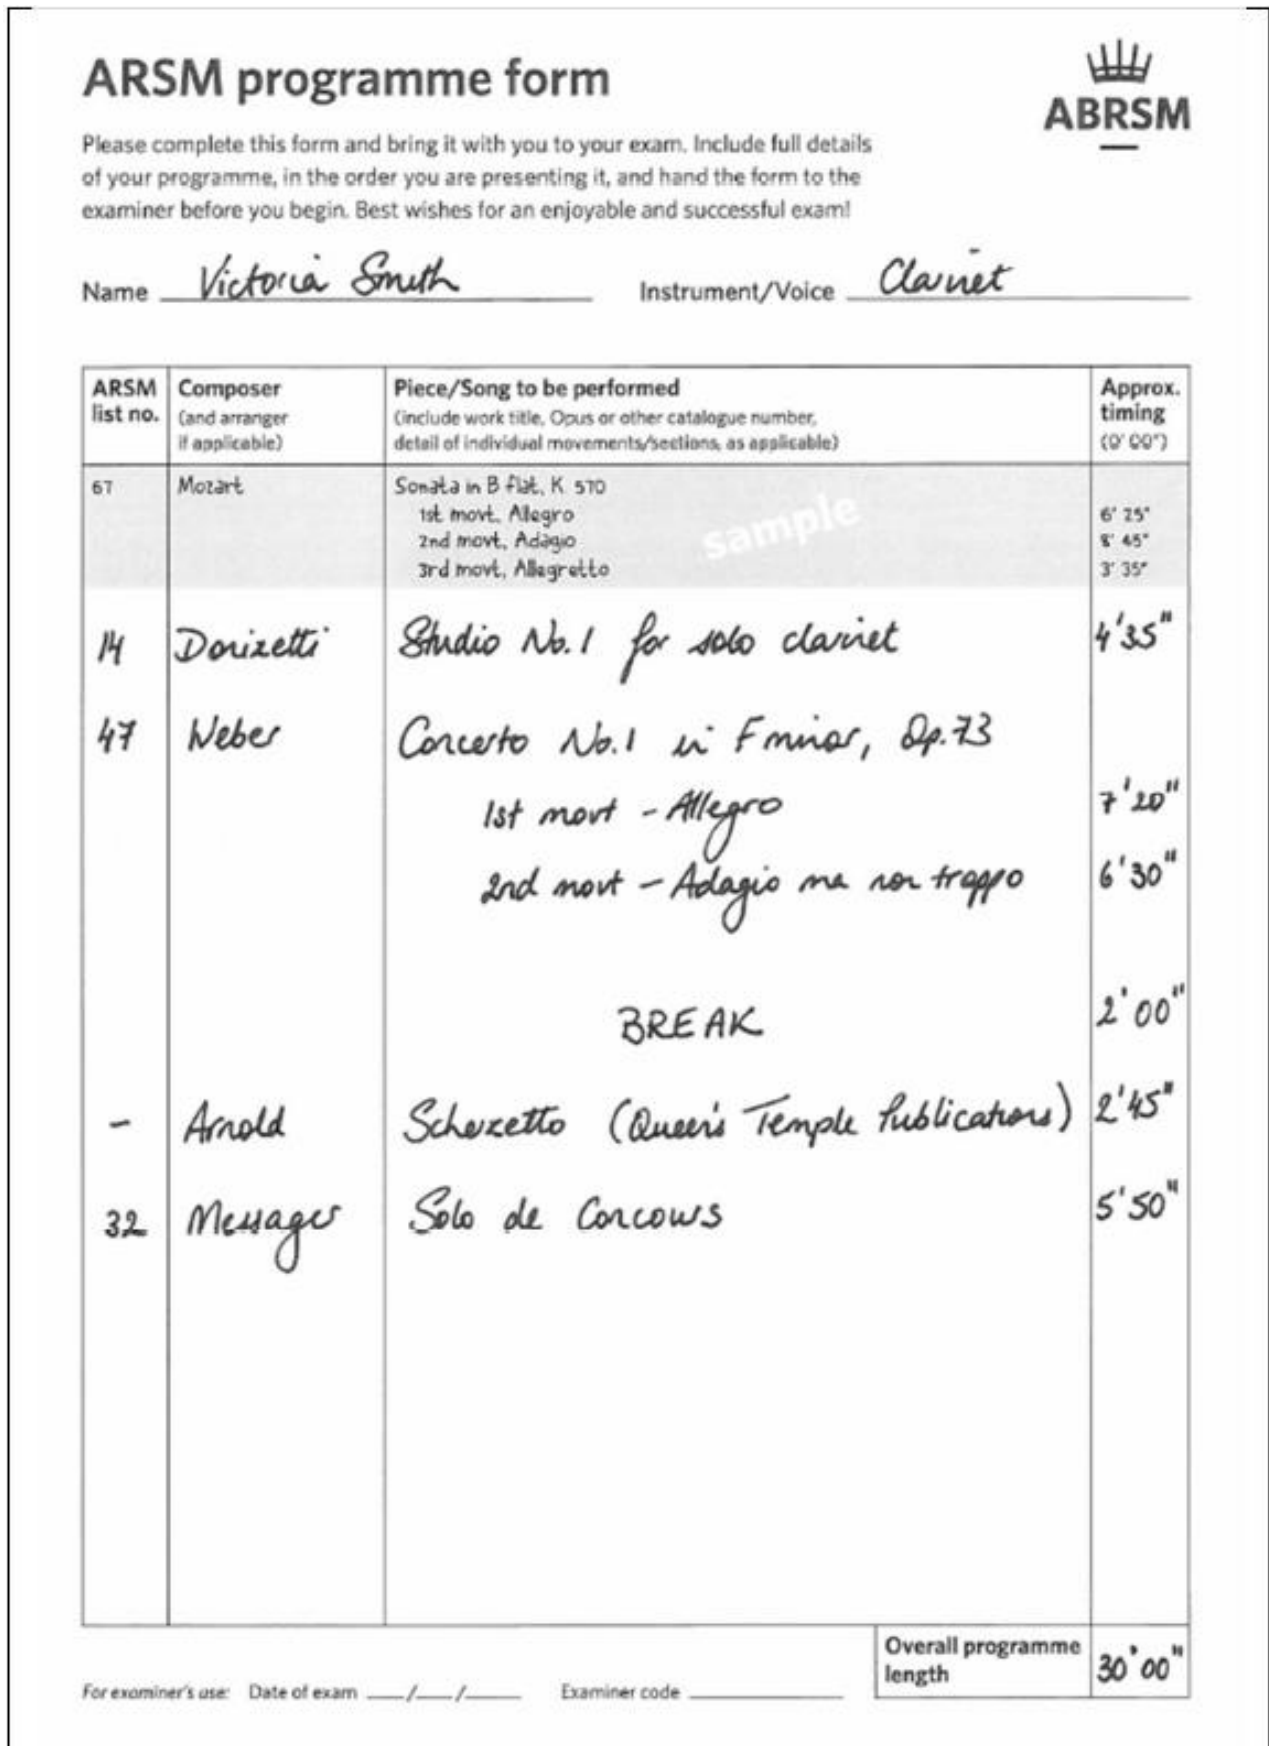 ARSM programme form
ABRSM
Please complete this form and bring it with you to your exam. Include full details
of your programme, in the order you are presenting it, and hand the form to the
examiner before you begin. Best wishes for an enjoyable and successful exam!
Name Victoria Smith Instrument/Voice Clarinet
ARSM Composer Piece/Song to be performed Approx.
list no. (and arranger (include work title, Opus or other catalogue number, timing
if applicable) detail of individual movements/sections, as applicable) (0' 00")
67 Mozart Sonata in B flat, K 570
1st movt, Allegro 6' 25"
sample
2nd movt, Adagio 8' 45"
3rd movt, Allegretto 3' 35"
14 Donizetti Studio No. 1 for solo clarinet 4'35"
47 Weber Concerto No. 1 in F minor, Op. 73
1st movt - Allegro 7'20"
2nd movt - Adagio ma non troppo 6'30"
BREAK 2'00"
- Arnold Scherzetto (Queen's Temple Publications) 2'45"
32 Messager Solo de Concours 5'50"
Overall programme
length 30'00"
For examiner's use: Date of exam __/__/__ Examiner code